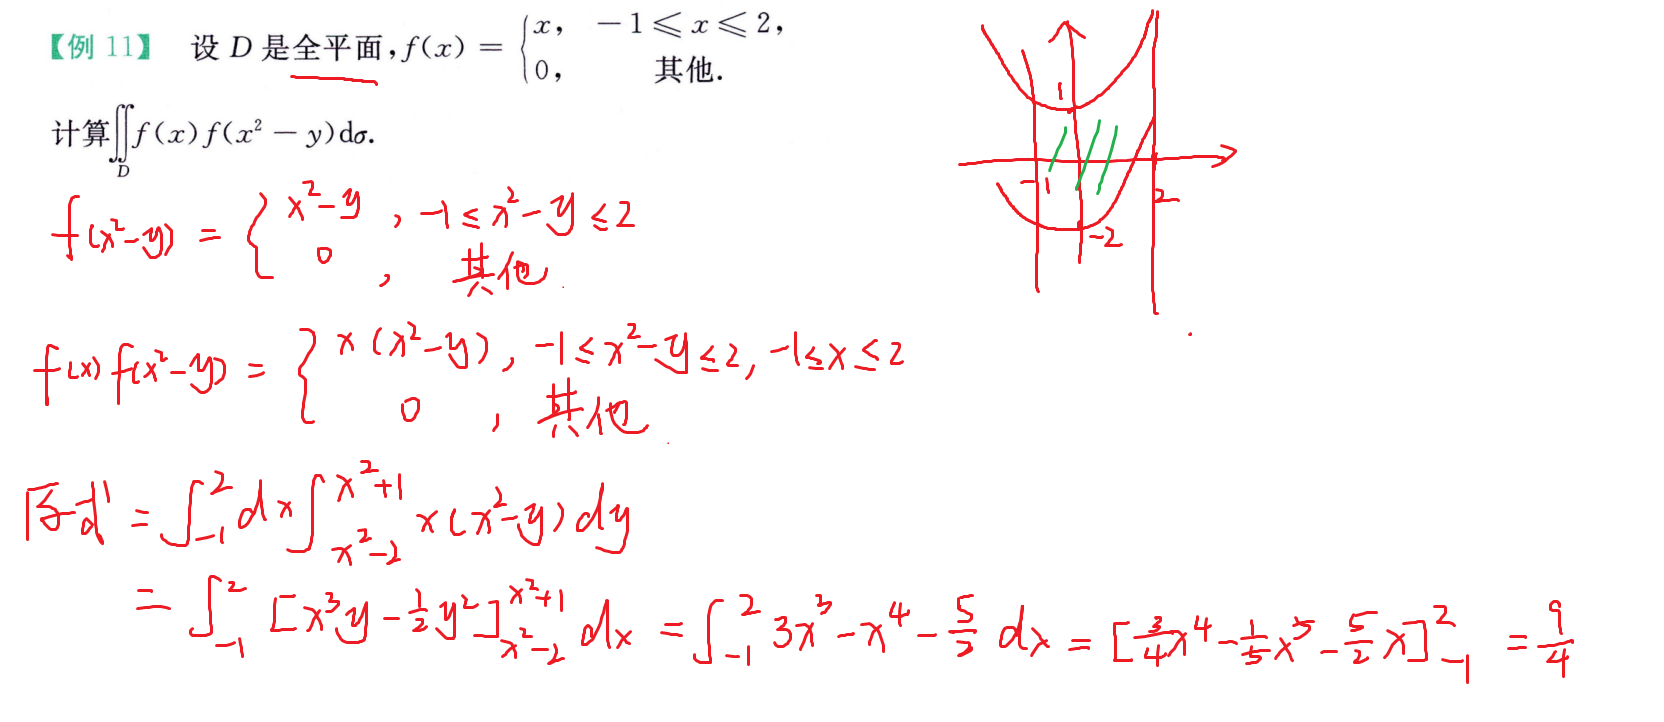 【例 11】 设 D 是全平面,f(x) = { x, -1 ⩽ x ⩽ 2,
0, 其他.
计算∬_D f(x)f(x² - y)dσ.
f(x²-y) = { x²-y , -1 ≤ x²-y ≤ 2
0 , 其他.
f(x)f(x²-y) = { x(x²-y), -1≤x²-y≤2, -1≤x≤2
0 , 其他.
原式 = ∫_{-1}^{2} dx ∫_{x²-2}^{x²+1} x(x²-y)dy
= ∫_{-1}^{2} [x³y - 1/2 y²]_{x²-2}^{x²+1} dx = ∫_{-1}^{2} 3x³ - x⁴ - 5/2 dx = [3/4 x⁴ - 1/5 x⁵ - 5/2 x]_{-1}^{2} = 9/4
1
-1
2
-2